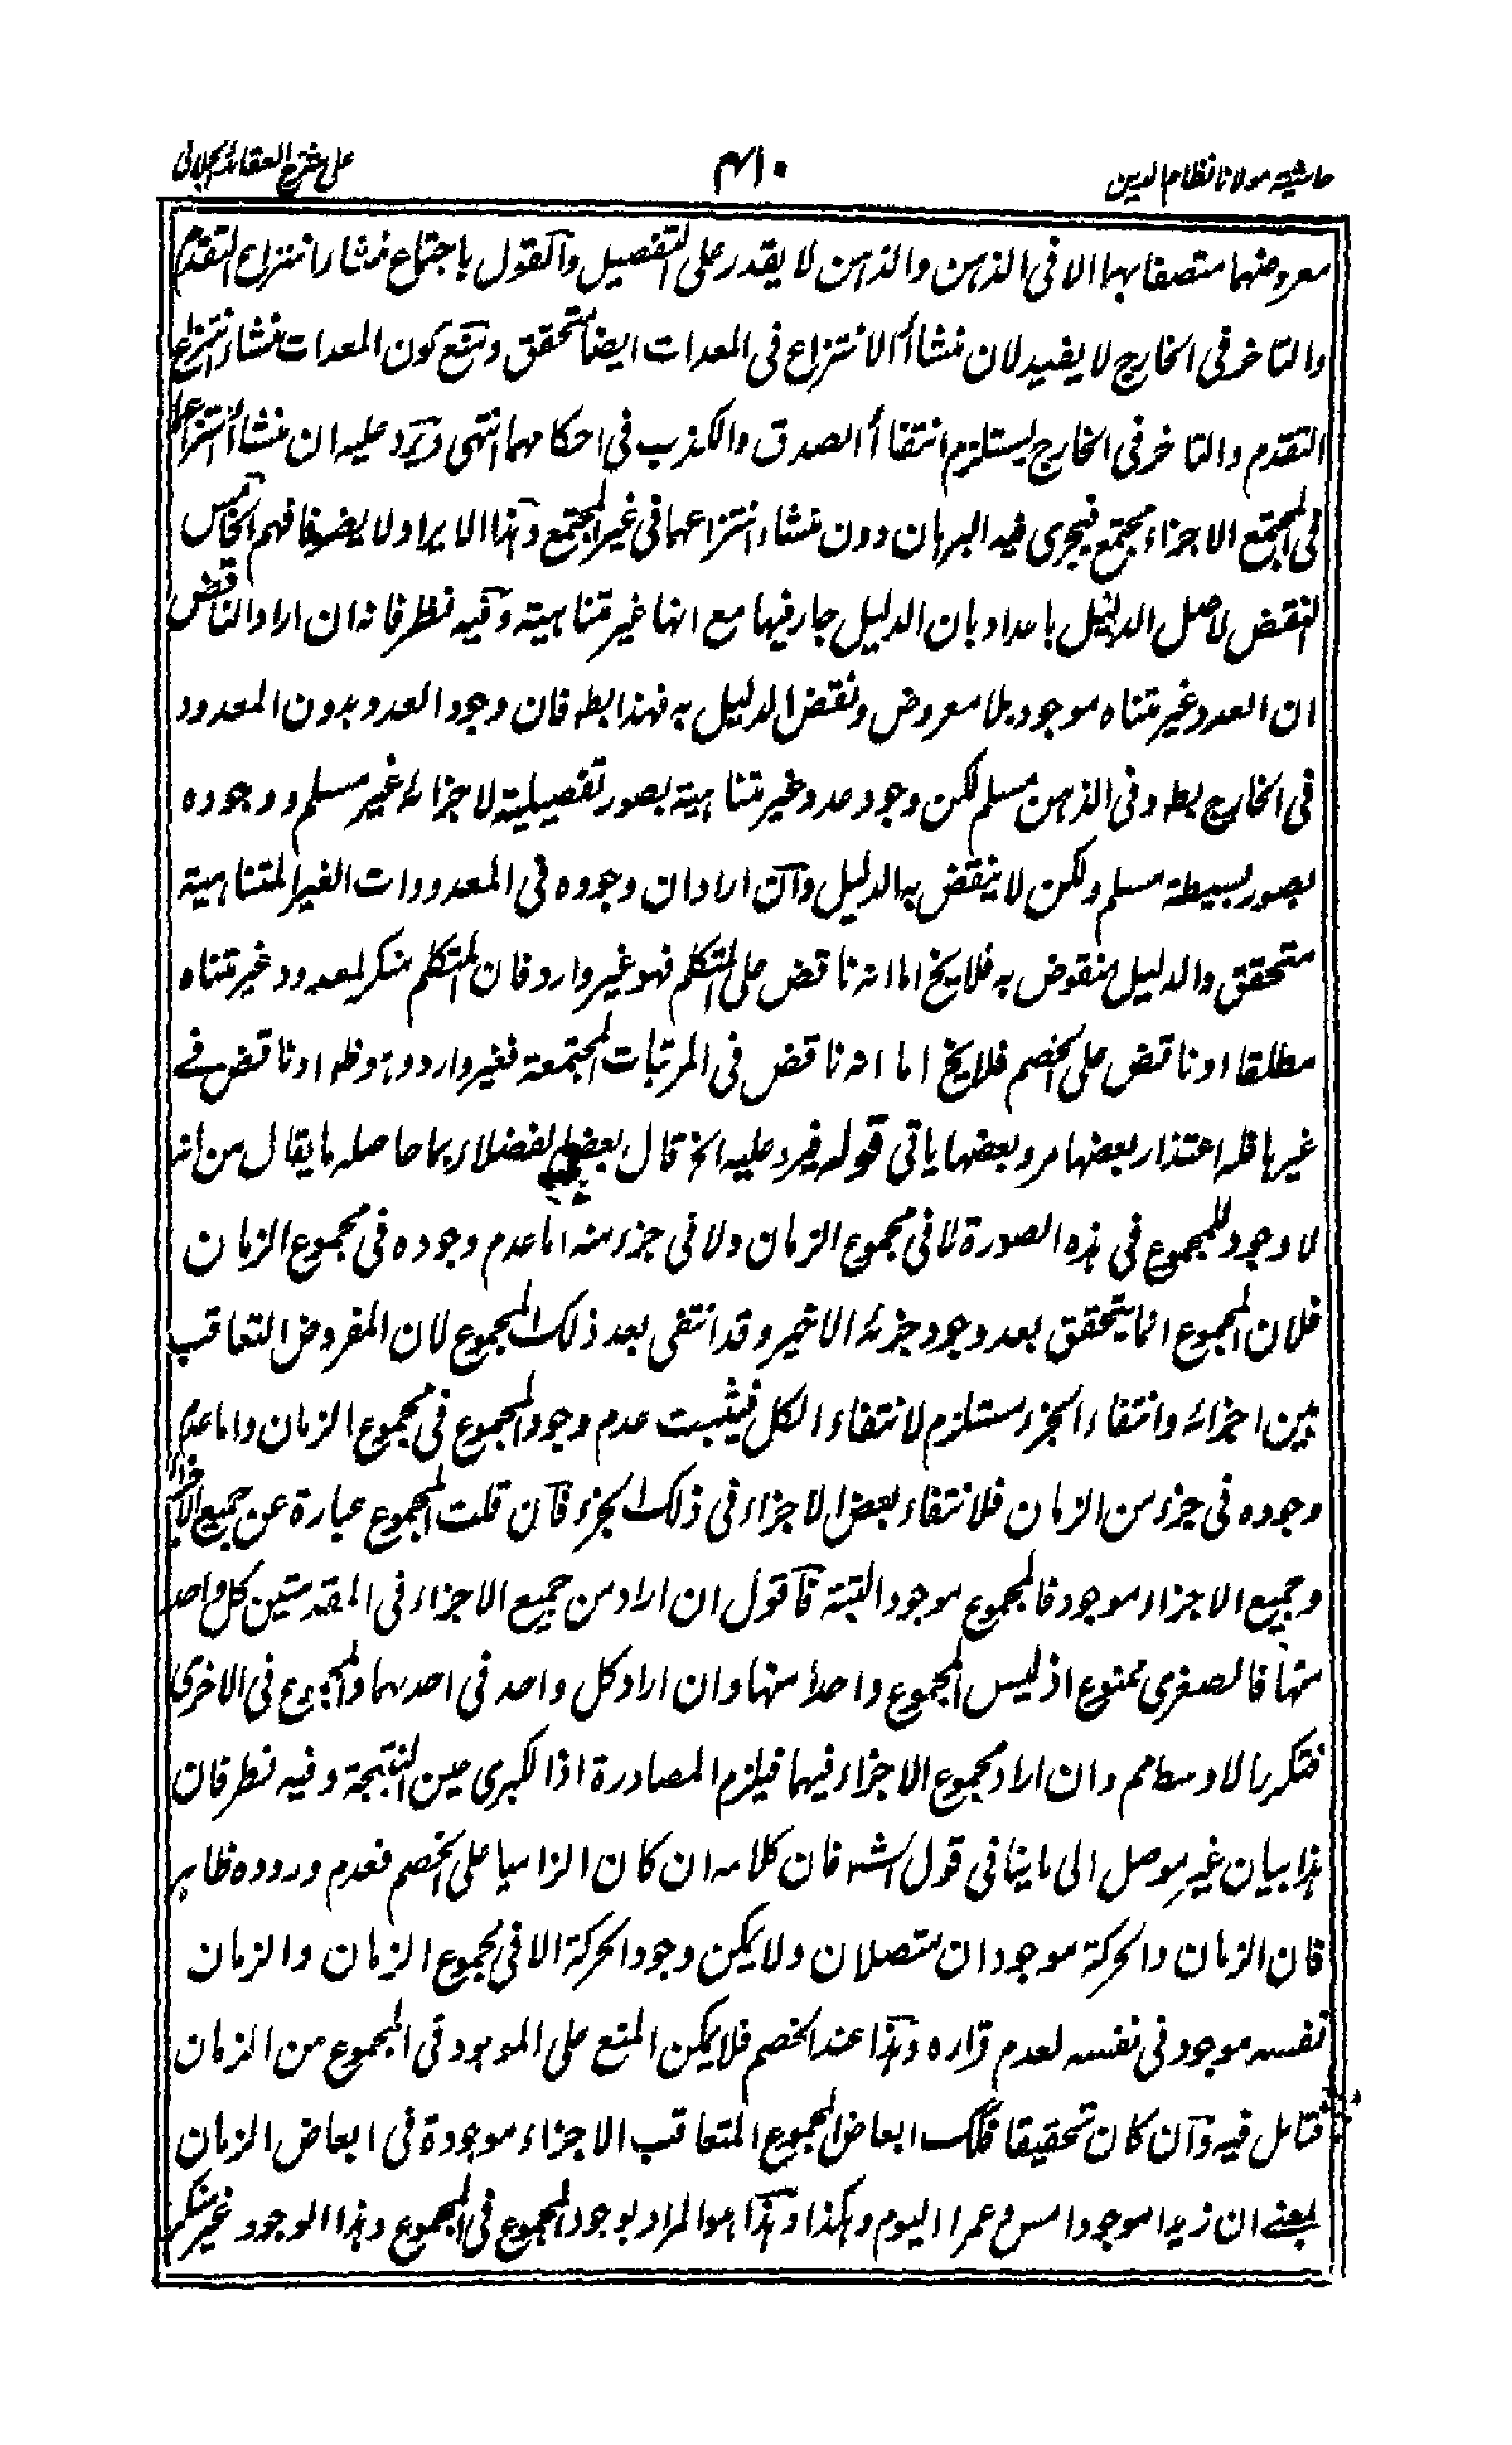 حاشية مولانا نظام الدين
٤١٠
على شرح العقائد الجلالى
معروضهما متصفا بهما الا فى الذهن والذهن لا يقدر على التفصيل والقول باجتماع منشأ انتزاع التقدم
والتاخر فى الخارج لا يفيد لان منشأ الانتزاع فى المعدات ايضا متحقق ومنع كون المعدات منشأ انتزاع
التقدم والتاخر فى الخارج يستلزم انتفاء الصدق والكذب فى احكامهما انتهى ويرد عليه ان منشأ انتزاعهما
فى المجتمع الاجزاء مجتمع فيجرى فيه البرهان دون منشاء انتزاعهما فى غير المجتمع وهذا الايراد لا يضر فافهم الخامس
النقض لاصل الدليل باعداد بان الدليل جار فيها مع انها غير متناهية وفيه نظر فانه ان اراد الناقض
ان العدد غير متناه موجود بلا معروض ونقض الدليل به فهذا بط فان وجود العدد بدون المعدود
فى الخارج بط وفى الذهن مسلم لكن وجود عدد غير متناهية بصور تفصيلية لاجزائه غير مسلم ووجوده
بصور بسيطة مسلم ولكن لا ينقض به الدليل وان اراد ان وجوده فى المعدودات الغير المتناهية
متحقق والدليل منقوض به فلا يخ اما انه ناقض على المتكلم فهو غير وارد فان المتكلم منكر لمعدود غير متناه
مطلقا او ناقض على الخصم فلا يخ اما انه ناقض فى المرتبات المجتمعة فغير وارد وهو ظ او ناقض فے
غيرها فله اعتذار بعضها مر وبعضها ياتى قوله فيرد عليه الخ قال بعض الفضلاء بما حاصله ما يقال من انه
لا وجود للمجموع فى هذه الصورة لا فى مجموع الزمان ولا فى جزء منه اما عدم وجوده فى مجموع الزمان
فلان المجموع انما يتحقق بعد وجود جزئه الاخير وقد انتفى بعد ذلك المجموع لان المفروض التعاقب
بين اجزائه وانتفاء الجزء مستلزم لانتفاء الكل فيثبت عدم وجود المجموع فى مجموع الزمان واما عدم
وجوده فى جزء من الزمان فلانتفاء بعض الاجزاء فى ذلك الجزء فان قلت المجموع عبارة عن جميع الاجزاء
وجميع الاجزاء موجود فالمجموع موجود البتة فاقول ان اراد من جميع الاجزاء فى المقدمتين كل واحد
منها فالصغرى ممنوع اذ ليس المجموع واحدا منها وان اراد كل واحد فى احدهما والمجموع فى الاخرى
فتكرر الاوسط مم وان اراد مجموع الاجزاء فيهما فيلزم المصادرة اذا لكبرى عين النتيجة وفيه نظر فان
هذا بيان غير موصل الى ما ينافى قول الش فان كلامه ان كان الزاميا على الخصم فعدم وروده ظاهر
فان الزمان والحركة موجودان متصلان ولا يمكن وجود الحركة الا فى مجموع الزمان والزمان
نفسه موجود فى نفسه لعدم قراره وهذا عند الخصم فلا يمكن المنع على الموجود فى المجموع من الزمان
فتامل فيه وان كان تحقيقا فلك ابعاض المجموع المتعاقب الاجزاء موجودة فى ابعاض الزمان
بمعنے ان زيدا موجود امس وعمرا اليوم وهكذا وهذا هو المراد بوجود المجموع فى المجموع وهذا الوجود غير منكر